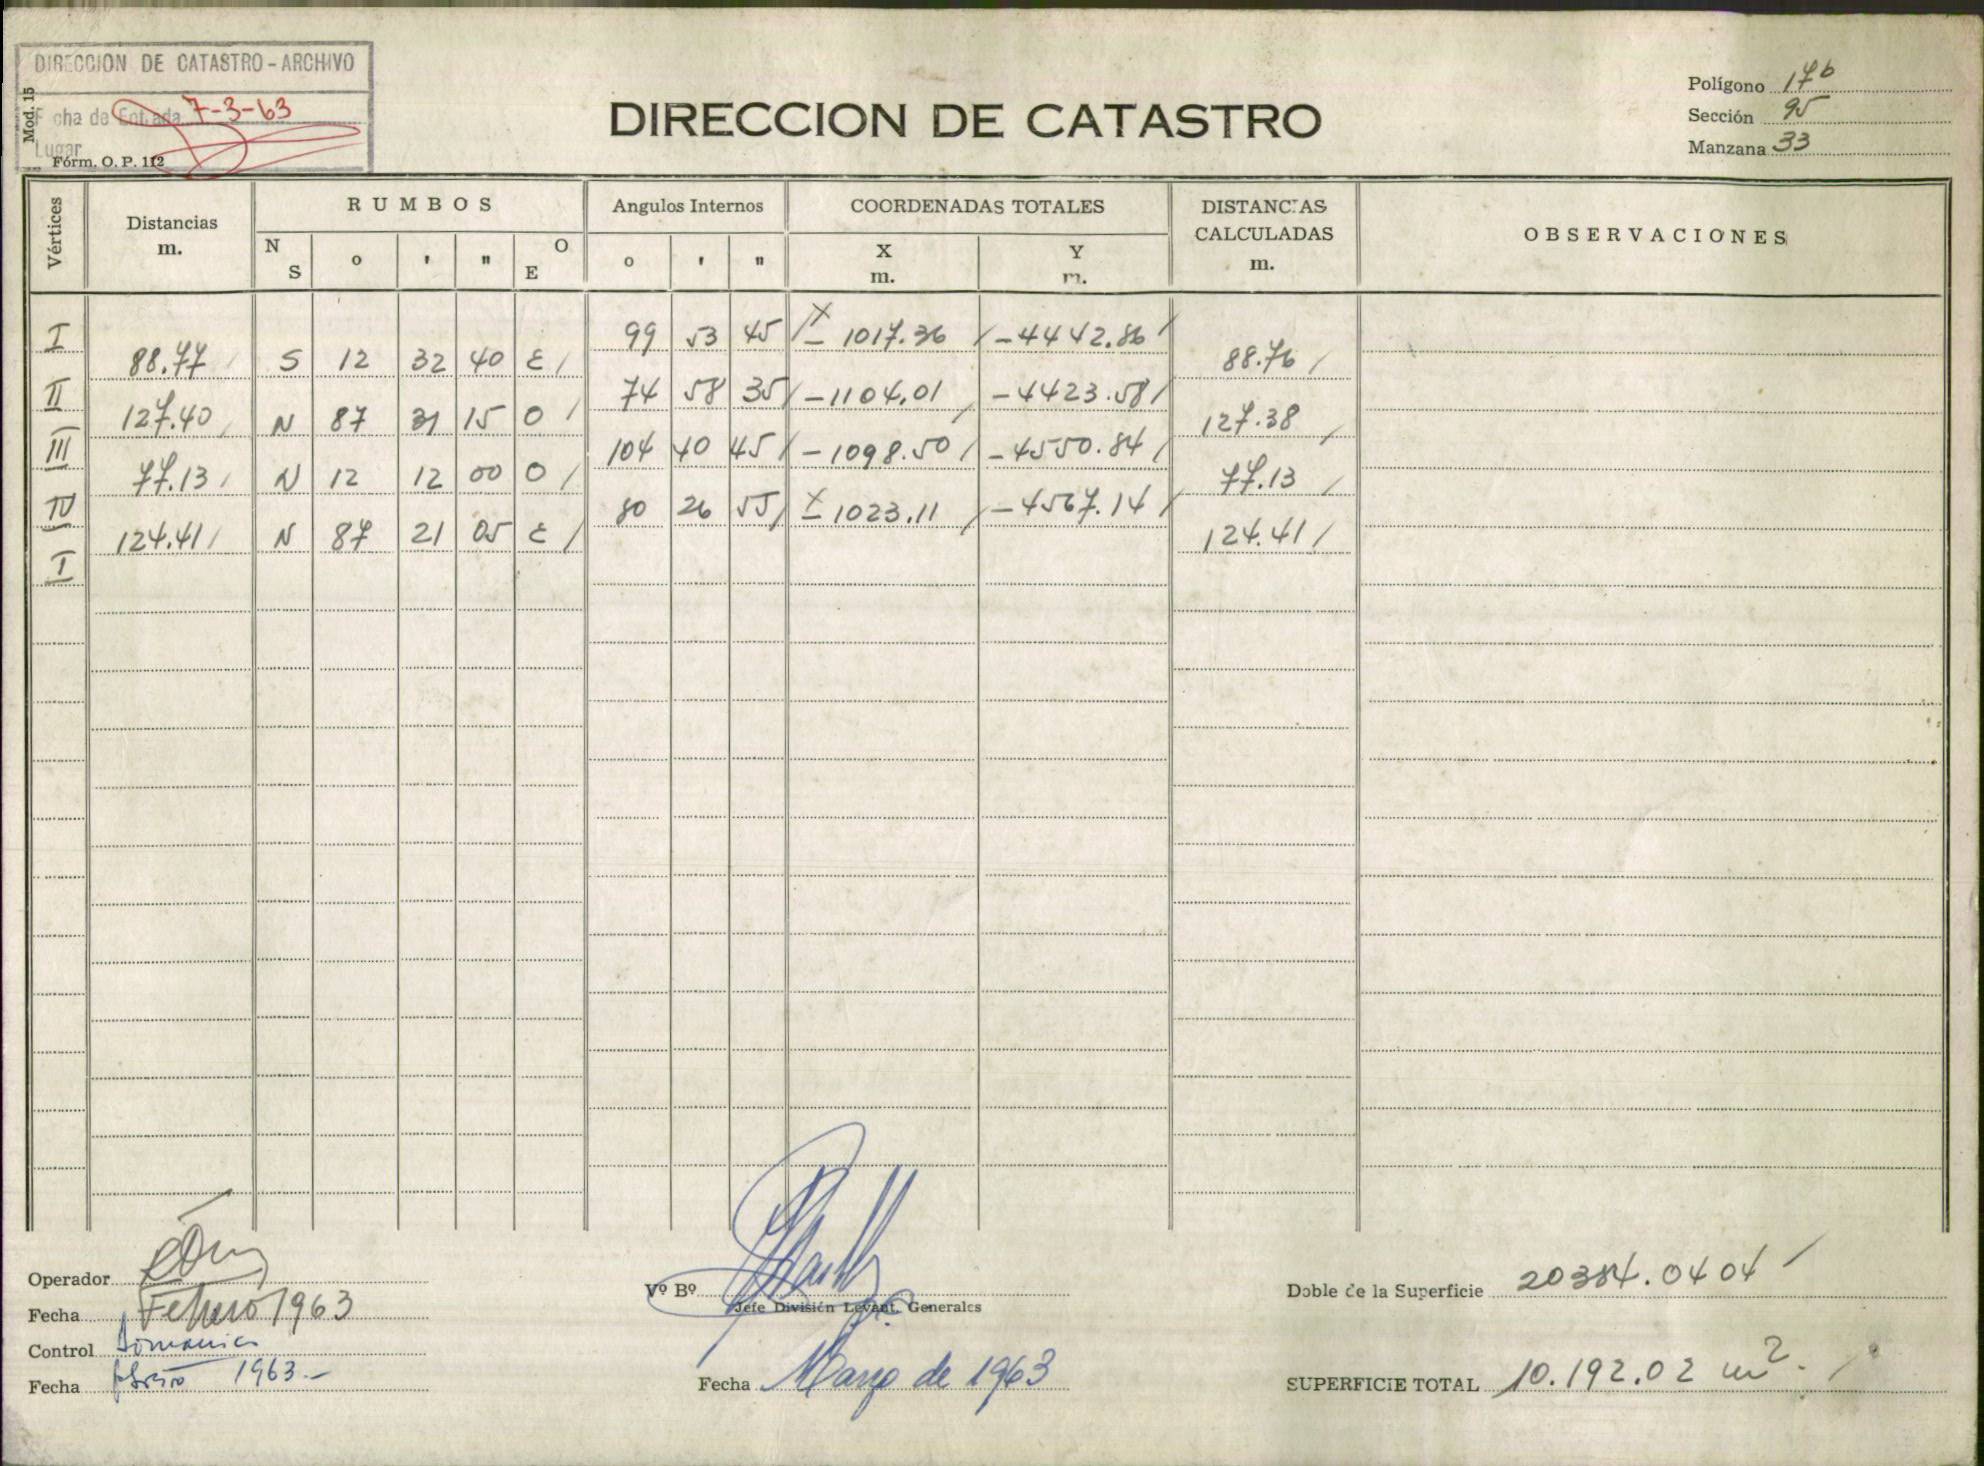 DIRECCION DE CATASTRO - ARCHIVO
Fecha de Entrada 7-3-63
Lugar
Mod. 15
Fórm. O. P. 112
DIRECCION DE CATASTRO
Polígono 17b
Sección 95
Manzana 33
Vértices
Distancias m.
RUMBOS
N S ° ' " O E
Angulos Internos
° ' "
COORDENADAS TOTALES
X m. Y m.
DISTANCIAS CALCULADAS m.
OBSERVACIONES
I 99 53 45 - 1017.36 -4442.86
88.77 S 12 32 40 E 88.76
II 74 58 35 -1104.01 -4423.58
127.40 N 87 31 15 O 127.38
III 104 40 45 -1098.50 -4550.84
77.13 N 12 12 00 O 77.13
IV 80 26 55 - 1023.11 -4567.14
124.41 N 87 21 05 E 124.41
I
Operador
Fecha Febrero 1963
Control
Fecha febrero 1963.-
Vº Bº
Jefe División Levant. Generales
Fecha Marzo de 1963
Doble de la Superficie 20384.0404
SUPERFICIE TOTAL 10.192.02 m².